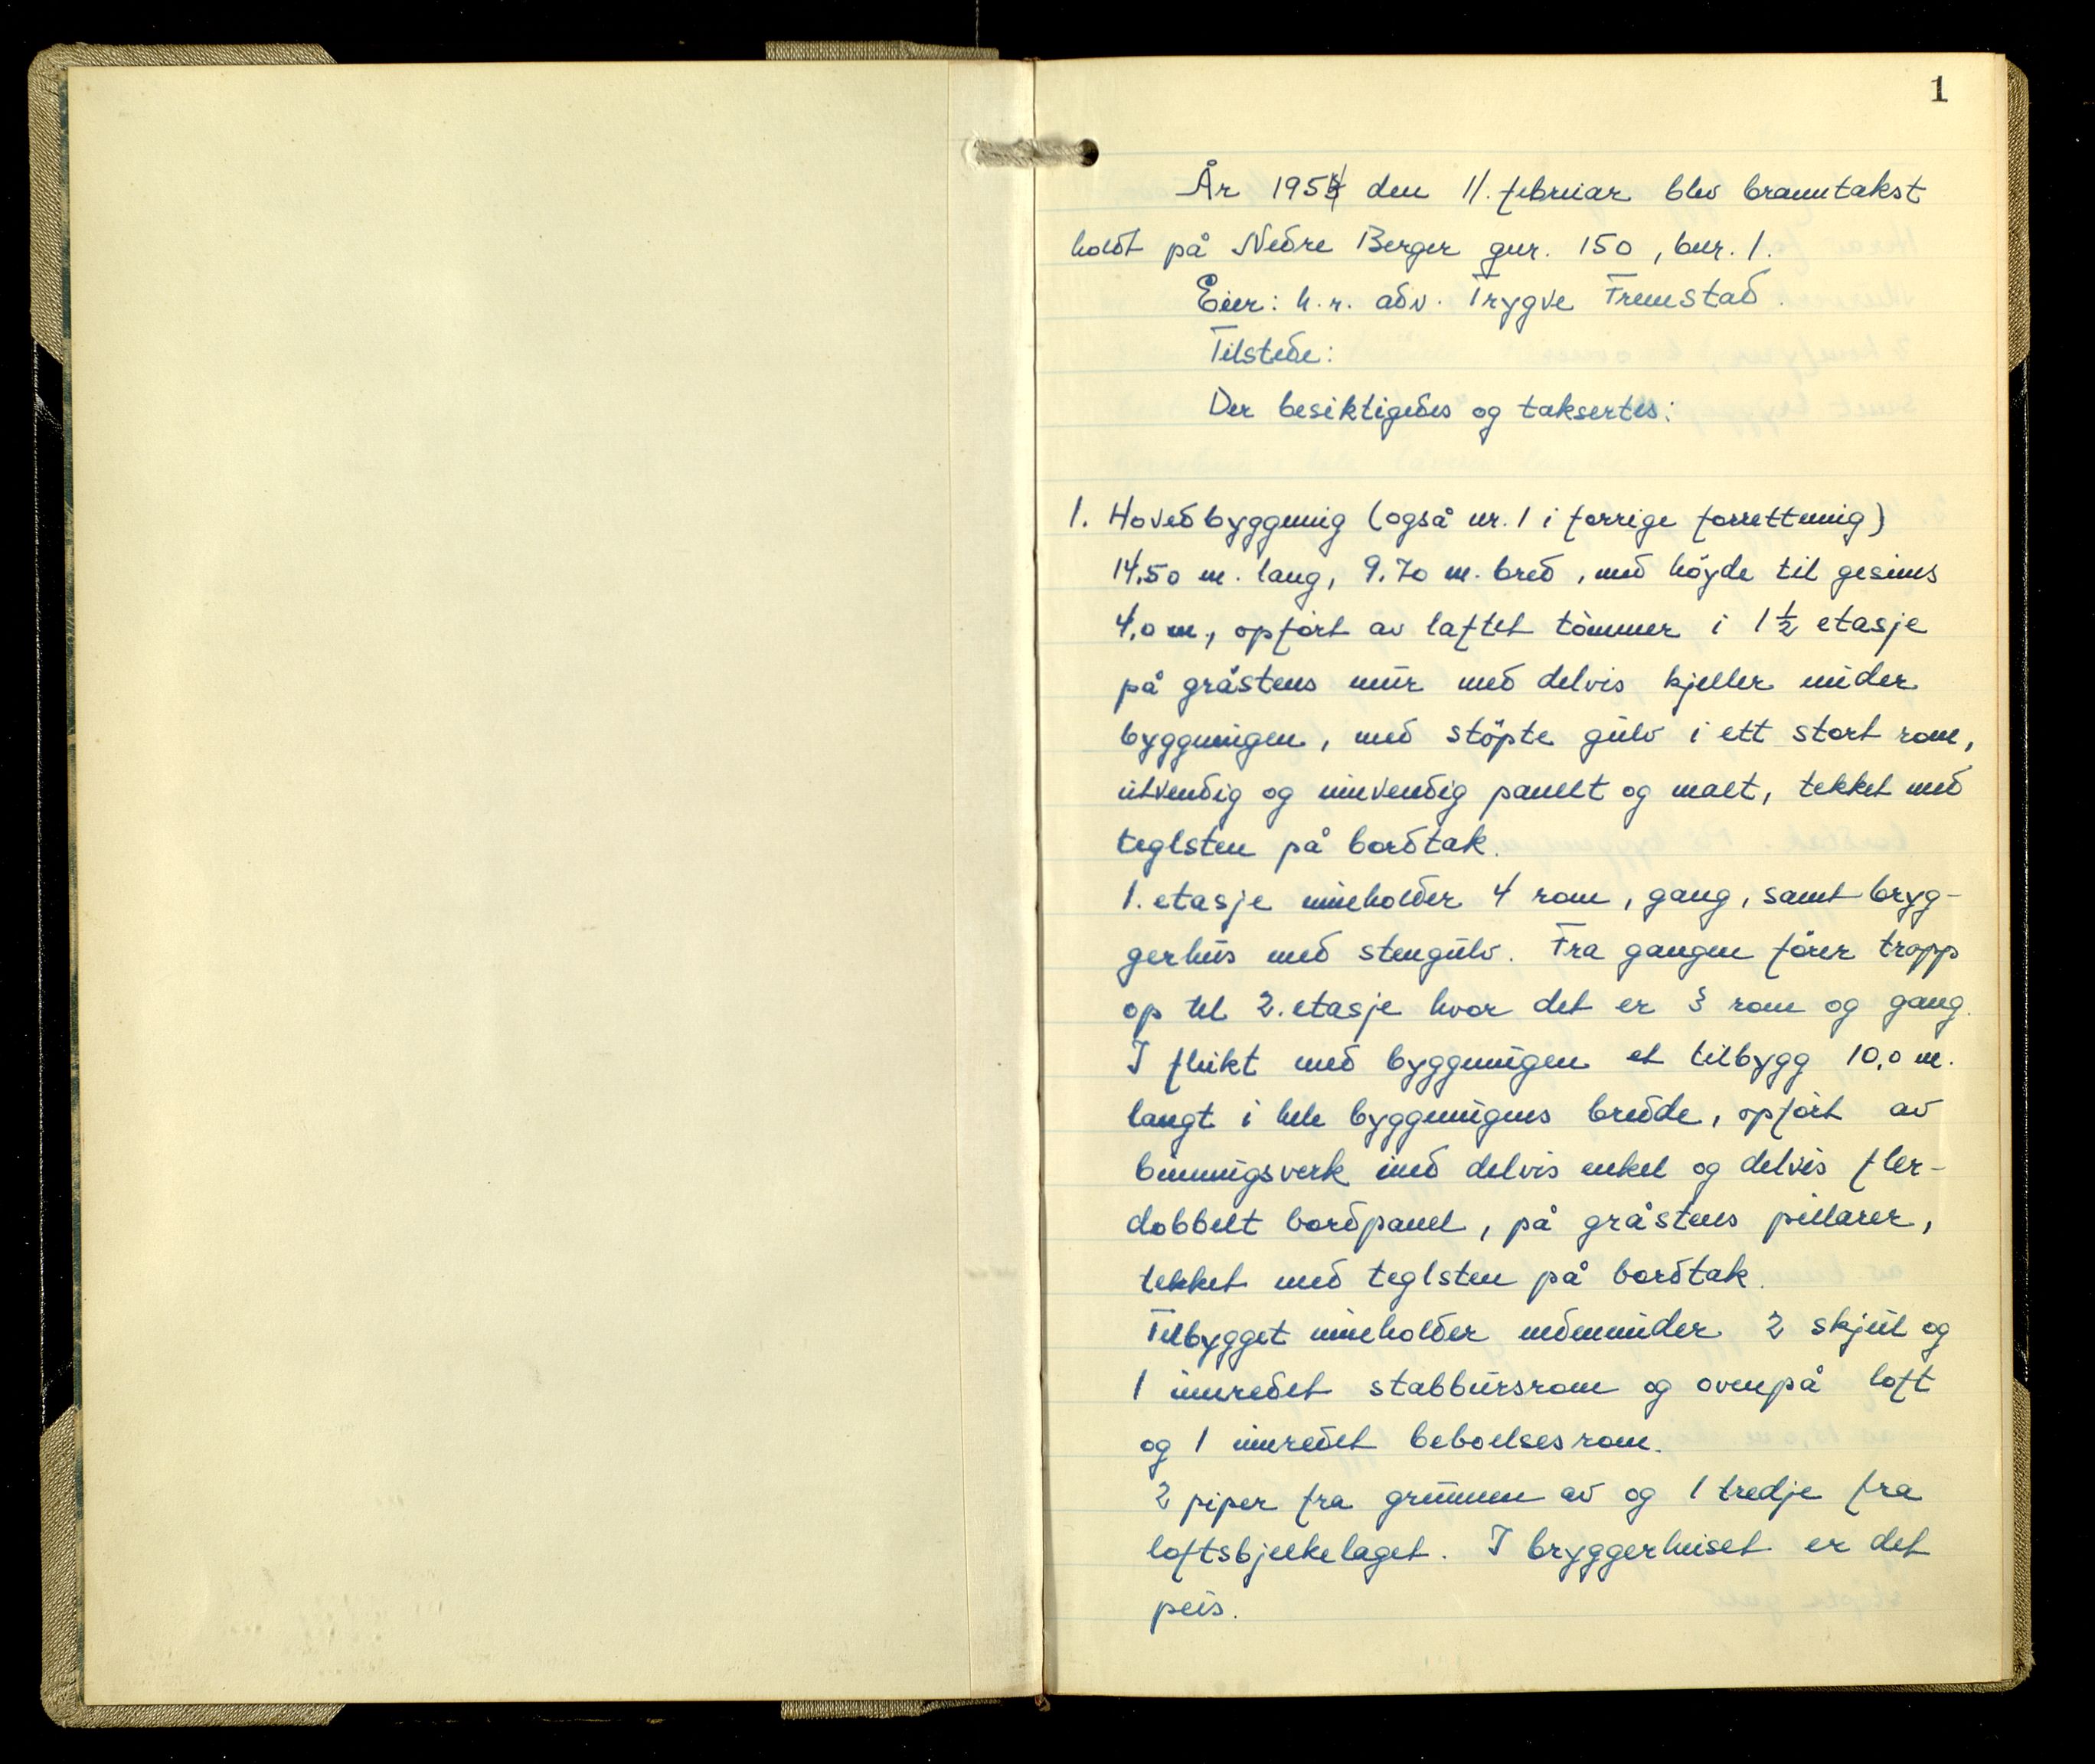 1
År 1954 den 11. februar blev branntakst
holdt på Nedre Berger gnr. 150, bnr. 1.
Eier: h.r. adv. Trygve Fremstad.
Tilstede:
Der besiktigedes og taksertes:
1. Hovedbyggning (også nr. 1 i forrige forrettning)
14.50 m. lang, 9.70 m. bred, med höyde til gesims
4.0 m., opfört av laftet tömmer i 1½ etasje
på gråstens mur med delvis kjeller under
bygningen, med stöpte gulv i ett stort rom,
utvendig og innvendig panelt og malt, tekket med
teglsten på bordtak.
1. etasje inneholder 4 rom, gang, samt bryg-
gerhus med stengulv. Fra gangen förer trapp
op til 2. etasje hvor det er 3 rom og gang.
I flukt med bygningen et tilbygg 10.0 m.
langt i hele bygningens bredde, opfört av
binningsverk med delvis enkel og delvis fler-
dobbelt bordpanel, på gråstens pillarer,
tekket med teglsten på bordtak.
Tilbygget inneholder nedenunder 2 skjul og
1 innredet stabbursrom og ovenpå loft
og 1 innredet beboelsesrom.
2 piper fra grunnen av og 1 tredje fra
loftsbjelkelaget. I bryggerhuset er det
peis.